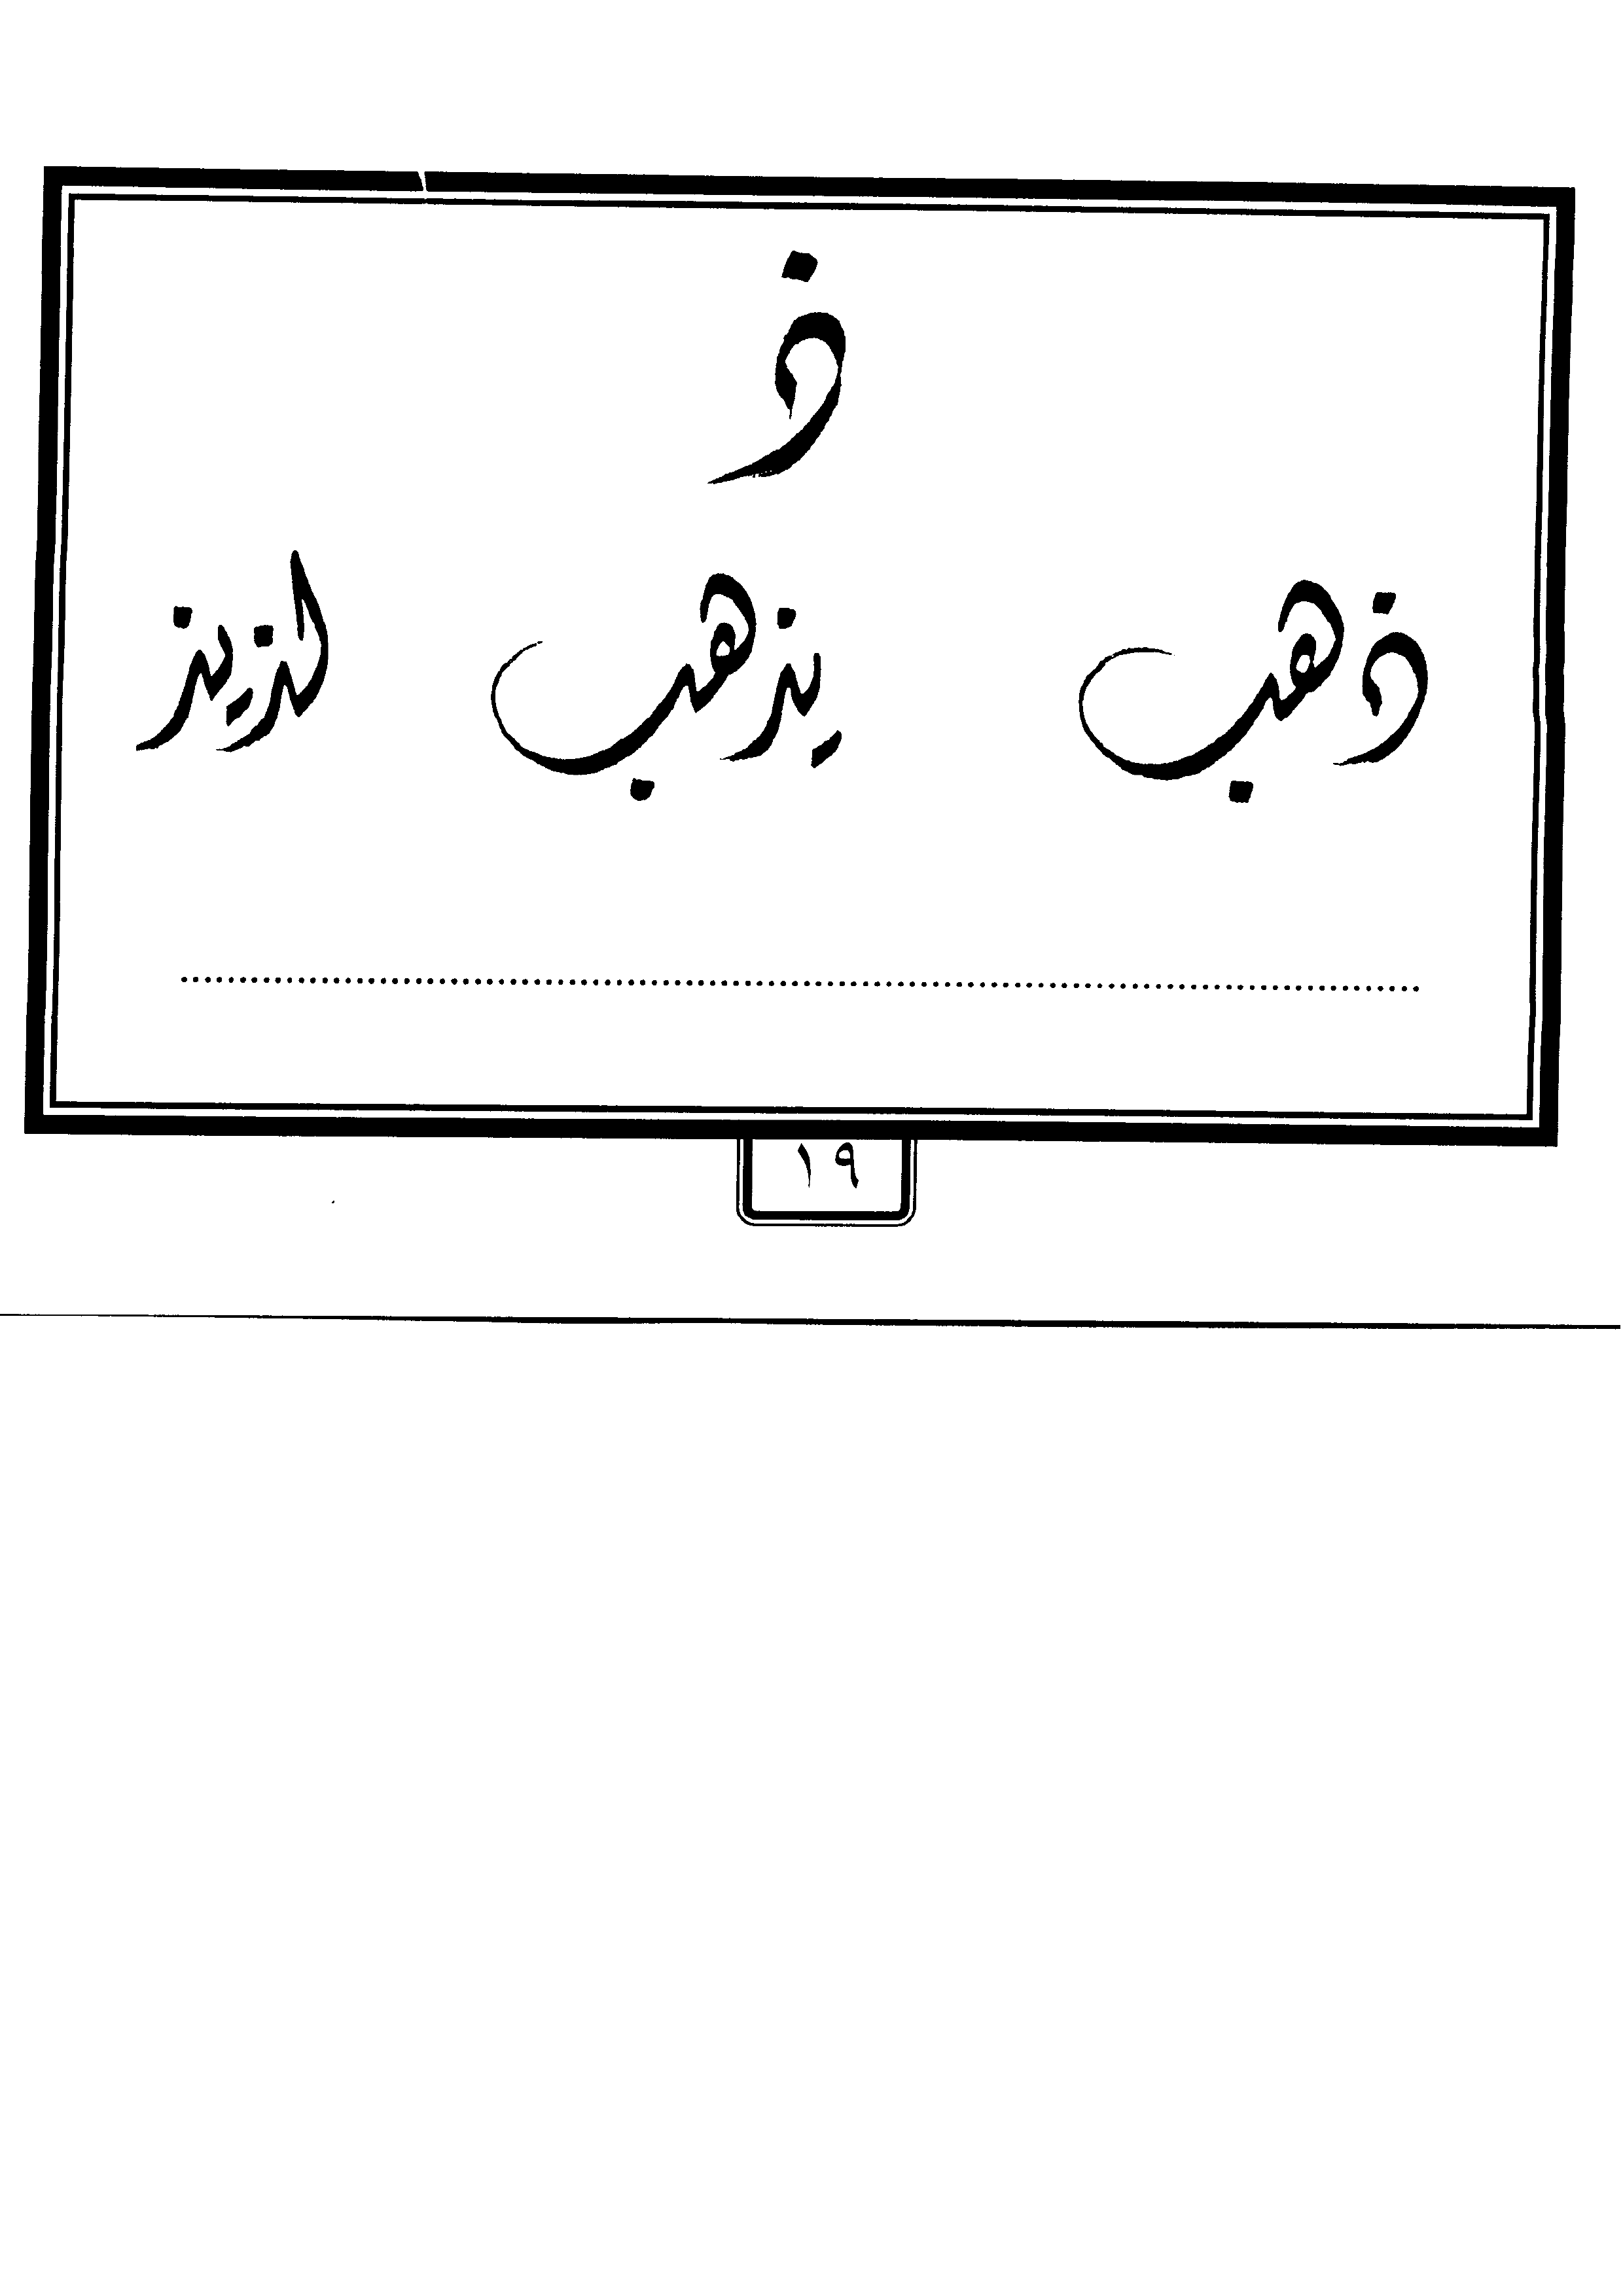 ذ
ذهب يذهب لذيذ
١٩